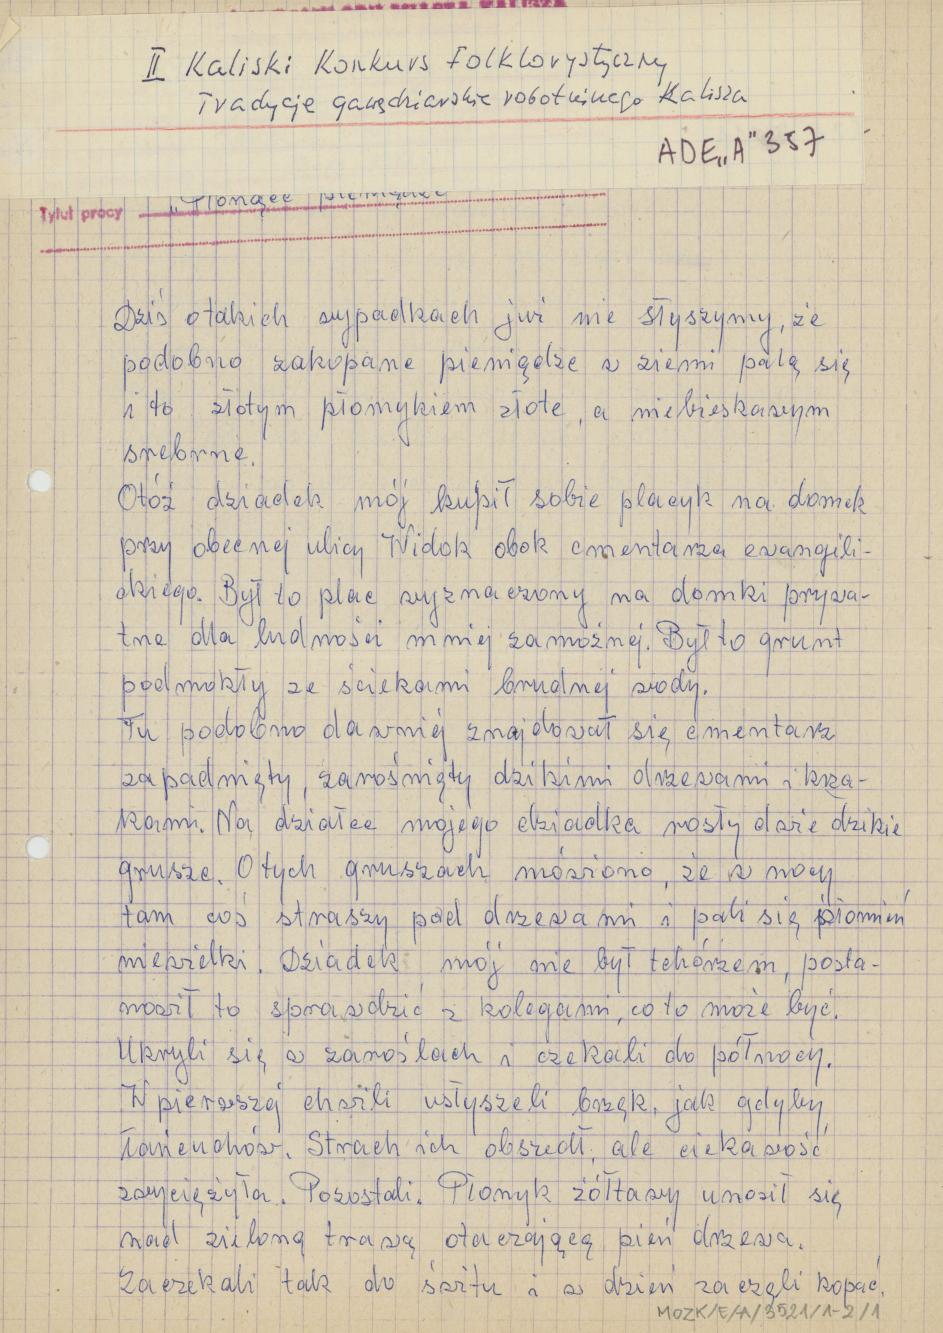 II Kaliski Konkurs Folklorystyczny
Tradycje gawędziarskie robotniczego Kalisza
ADE „A" 357
Tytuł pracy „Płonące pieniądze"
Dziś otakich wypadkach już nie słyszymy, że
podobno zakopane pieniądze w ziemi palą się
i to złotym płomykiem złote, a niebieskawym
srebrne.
Otóż dziadek mój kupił sobie placyk na domek
przy obecnej ulicy Widok obok cmentarza ewangili-
ckiego. Był to plac wyznaczony na domki prywa-
tne dla ludności mniej zamożnej. Był to grunt
podmokły ze ściekami brudnej wody.
Tu podobno dawniej znajdował się cmentarz
zapadnięty, zarośnięty dzikimi drzewami i krza-
kami. Na działce mojego dziadka rosły dwie dzikie
grusze. O tych gruszach mówiono, że w nocy
tam coś straszy pod drzewami i pali się płomień
niewielki. Dziadek mój nie był tchórzem, posta-
nowił to sprawdzić z kolegami, co to może być.
Ukryli się w zaroślach i czekali do północy.
W pierwszej chwili usłyszeli brzęk, jak gdyby
łańcuchów. Strach ich obszedł, ale ciekawość
zwyciężyła. Pozostali. Płomyk żółtawy unosił się
nad zieloną trawą otaczającą pień drzewa.
Zaczekali tak do świtu i w dzień zaczęli kopać.
MOZK/E/A/3521/1-2/1